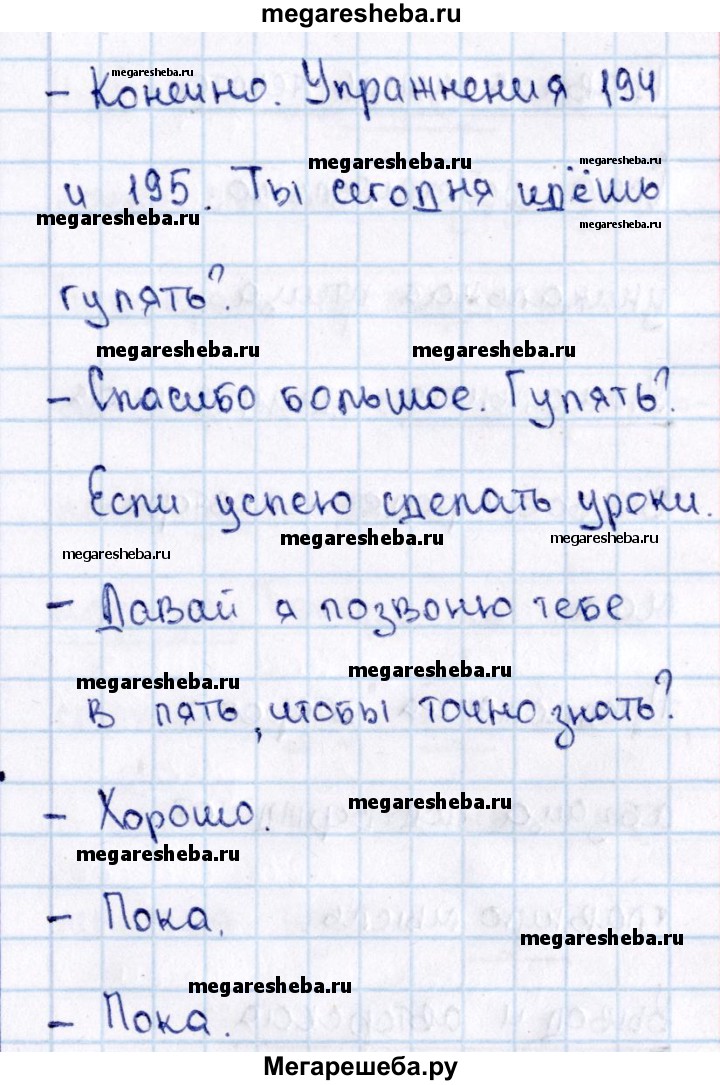 megaresheba.ru
megaresheba.ru
megaresheba.ru
- Конечно. Упражнения 194
megaresheba.ru
megaresheba.ru
и 195. Ты сегодня идёшь
megaresheba.ru
megaresheba.ru
гулять?
megaresheba.ru
megaresheba.ru
- Спасибо большое. Гулять?
Если успею сделать уроки.
megaresheba.ru
megaresheba.ru
megaresheba.ru
- Давай я позвоню тебе
megaresheba.ru
megaresheba.ru
в пять, чтобы точно знать?
megaresheba.ru
- Хорошо.
megaresheba.ru
- Пока.
megaresheba.ru
megaresheba.ru
- Пока.
Мегарешеба.ру